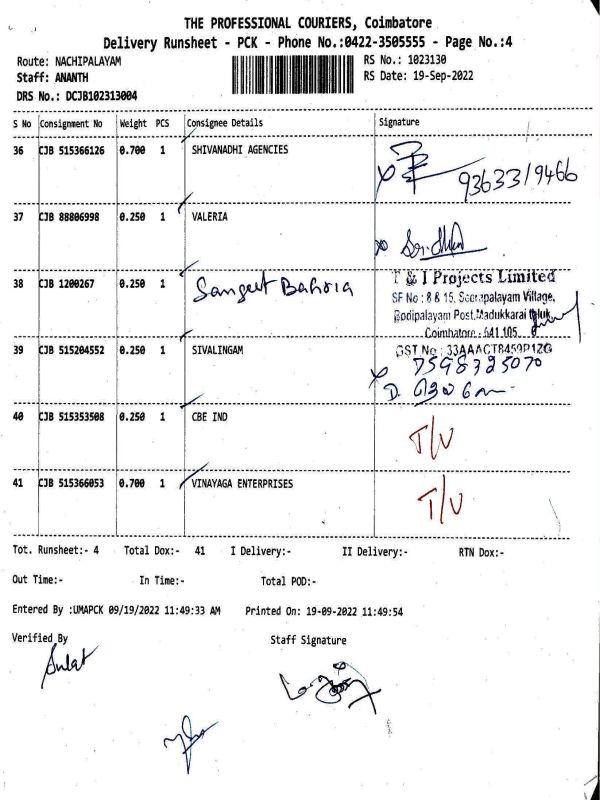 THE PROFESSIONAL COURIERS, Coimbatore
Delivery Runsheet - PCK - Phone No.:0422-3505555 - Page No.:4
Route: NACHIPALAYAM RS No.: 1023130
Staff: ANANTH RS Date: 19-Sep-2022
DRS No.: DCJB102313004
S No Consignment No Weight PCS Consignee Details Signature
36 CJB 515366126 0.700 1 SHIVANADHI AGENCIES
9363319466
37 CJB 88806998 0.250 1 VALERIA
38 CJB 1200267 0.250 1 Sangeet Bahoria
T & I Projects Limited
SF No : 8 & 15, Seerapalayam Village,
Bodipalayam Post, Madukkarai Taluk,
Coimbatore - 641 105.
GST No : 33AAACT8459P1ZG
39 CJB 515204552 0.250 1 SIVALINGAM
7598325070
40 CJB 515353508 0.250 1 CBE IND T/V
41 CJB 515366053 0.700 1 VINAYAGA ENTERPRISES T/V
Tot. Runsheet:- 4 Total Dox:- 41 I Delivery:- II Delivery:- RTN Dox:-
Out Time:- In Time:- Total POD:-
Entered By :UMAPCK 09/19/2022 11:49:33 AM Printed On: 19-09-2022 11:49:54
Verified By Staff Signature